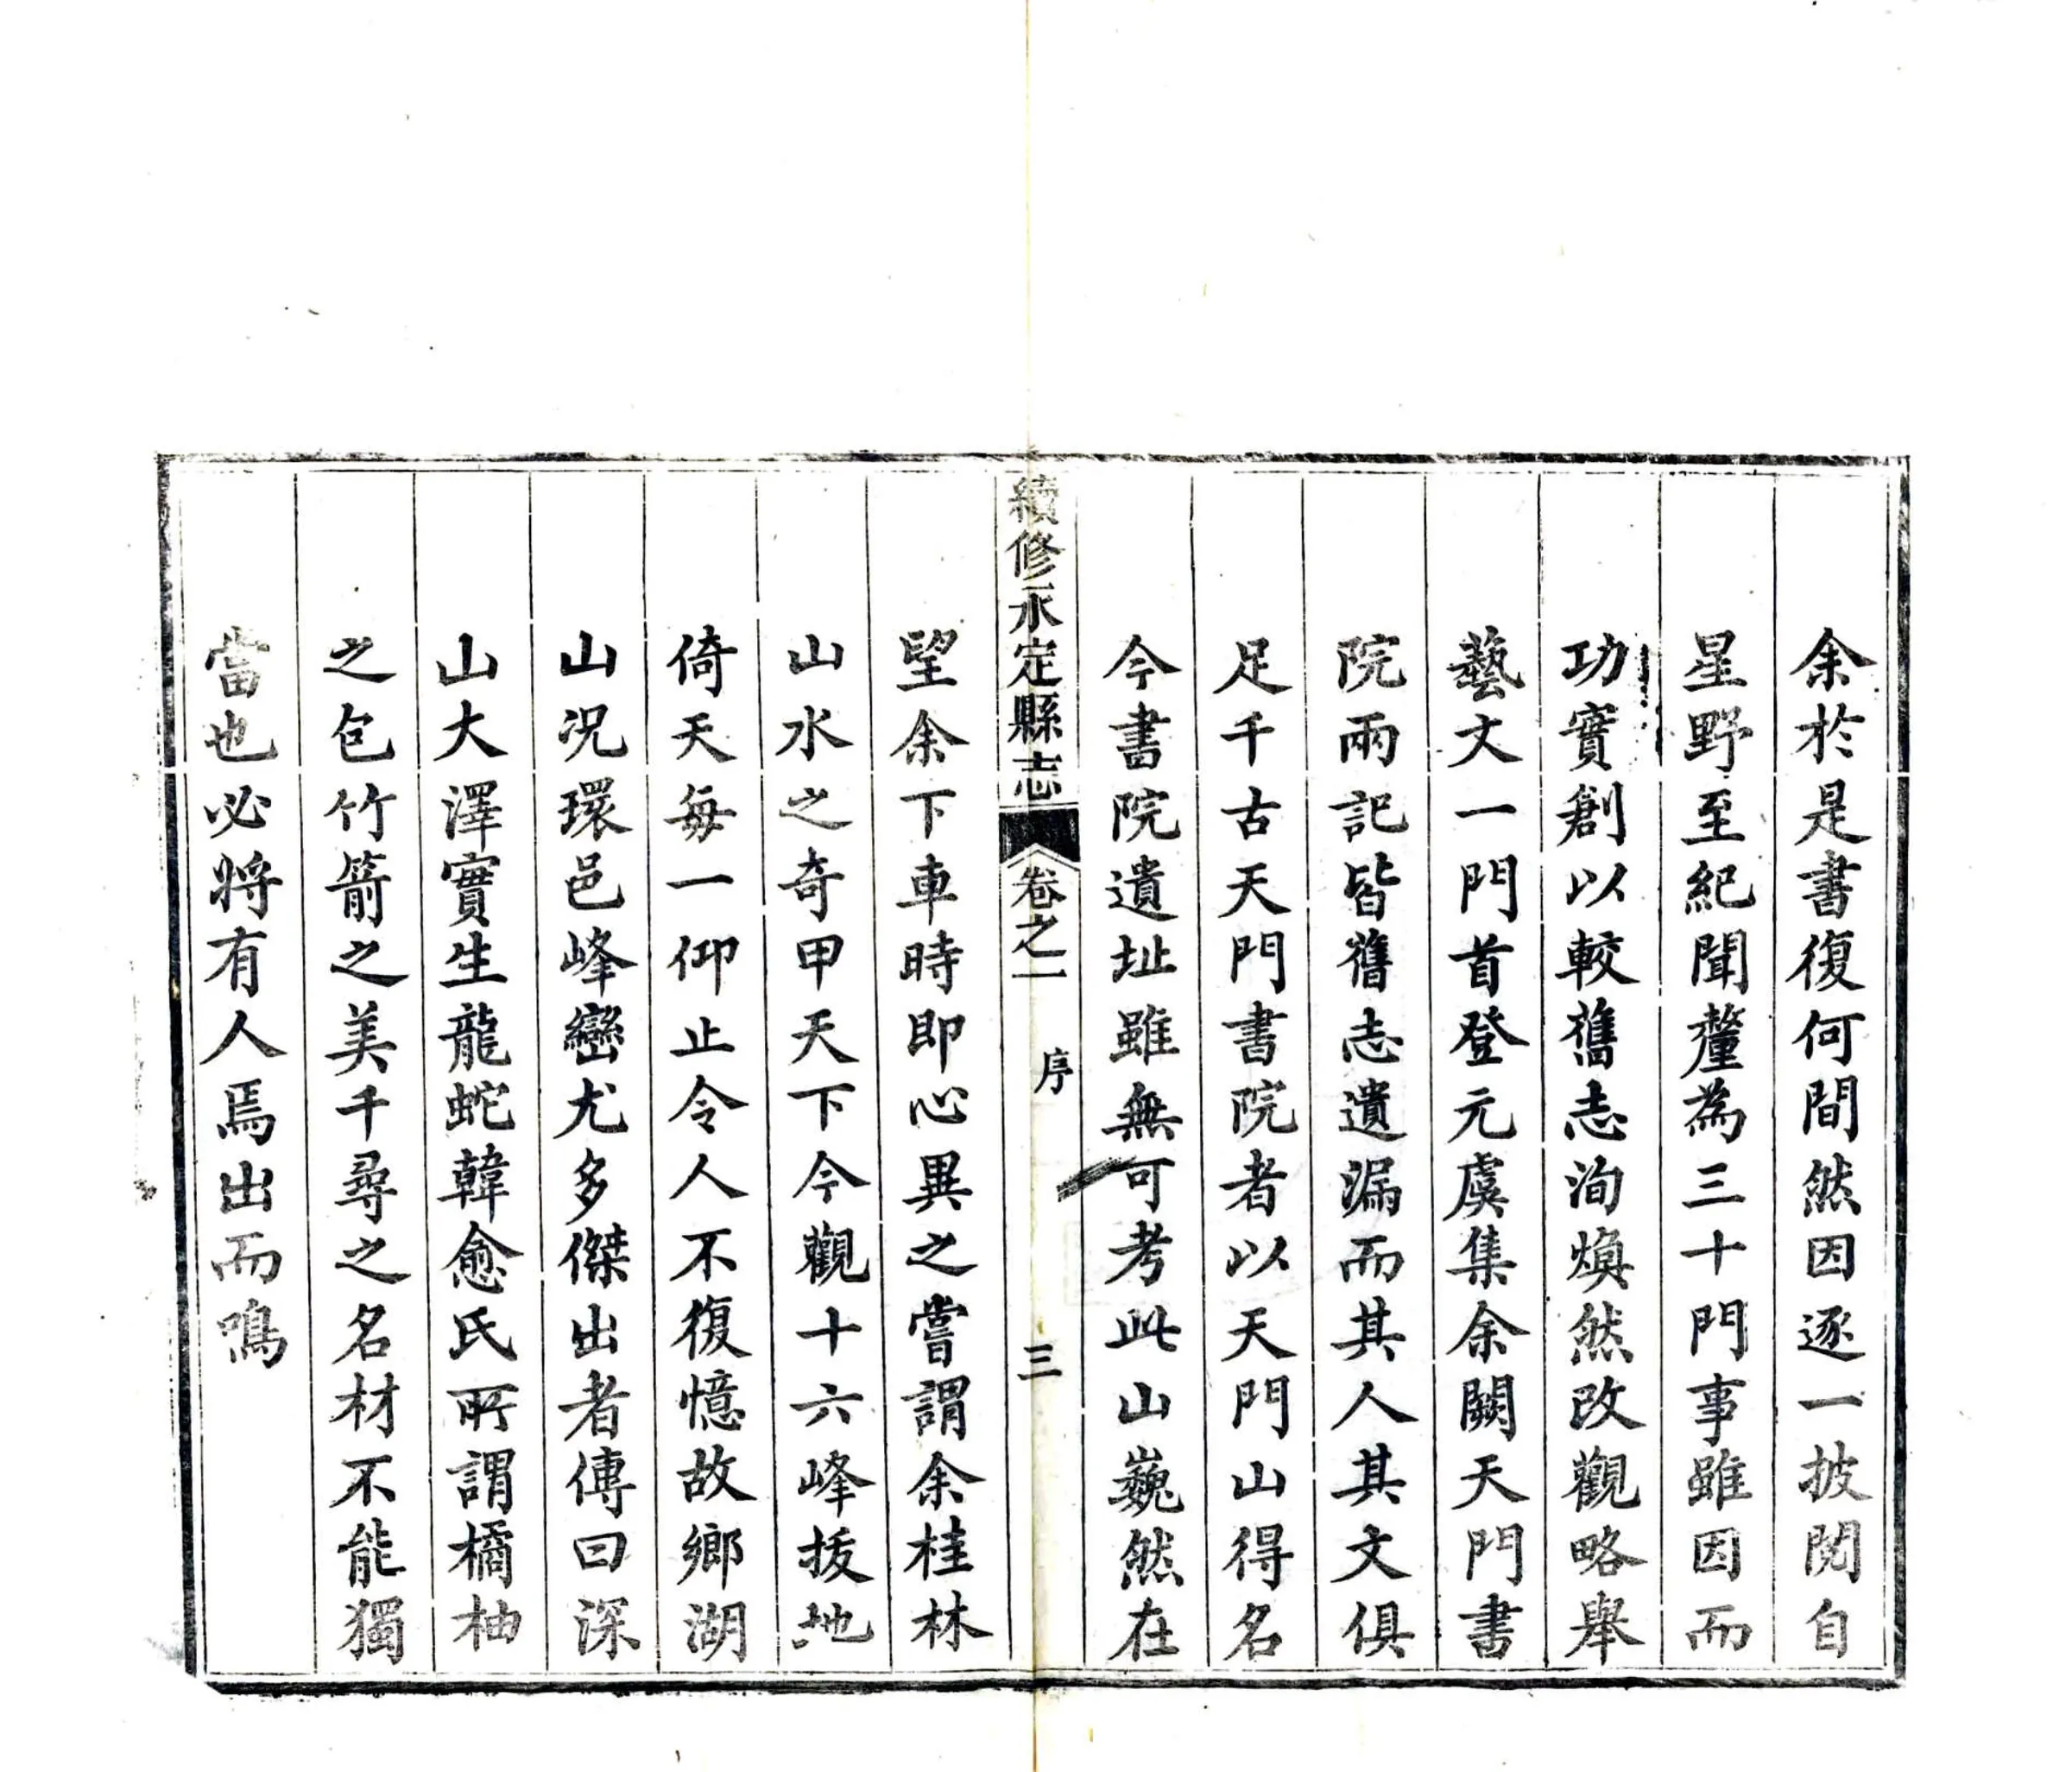 余於是書復何間然因逐一披閱自
星野至紀聞釐為三十門事雖因而
功實創以較舊志洵煥然改觀略舉
藝文一門首登元虞集余闕天門書
院兩記皆舊志遺漏而其人其文俱
足千古天門書院者以天門山得名
今書院遺址雖無可考此山巍然在
續修永定縣志 卷之一 序 三
望余下車時即心異之嘗謂余桂林
山水之奇甲天下今觀十六峰拔地
倚天每一仰止令人不復憶故鄉湖
山況環邑峰巒尤多傑出者傳曰深
山大澤實生龍蛇韓愈氏所謂橘柚
之包竹箭之美千尋之名材不能獨
當也必將有人焉出而鳴